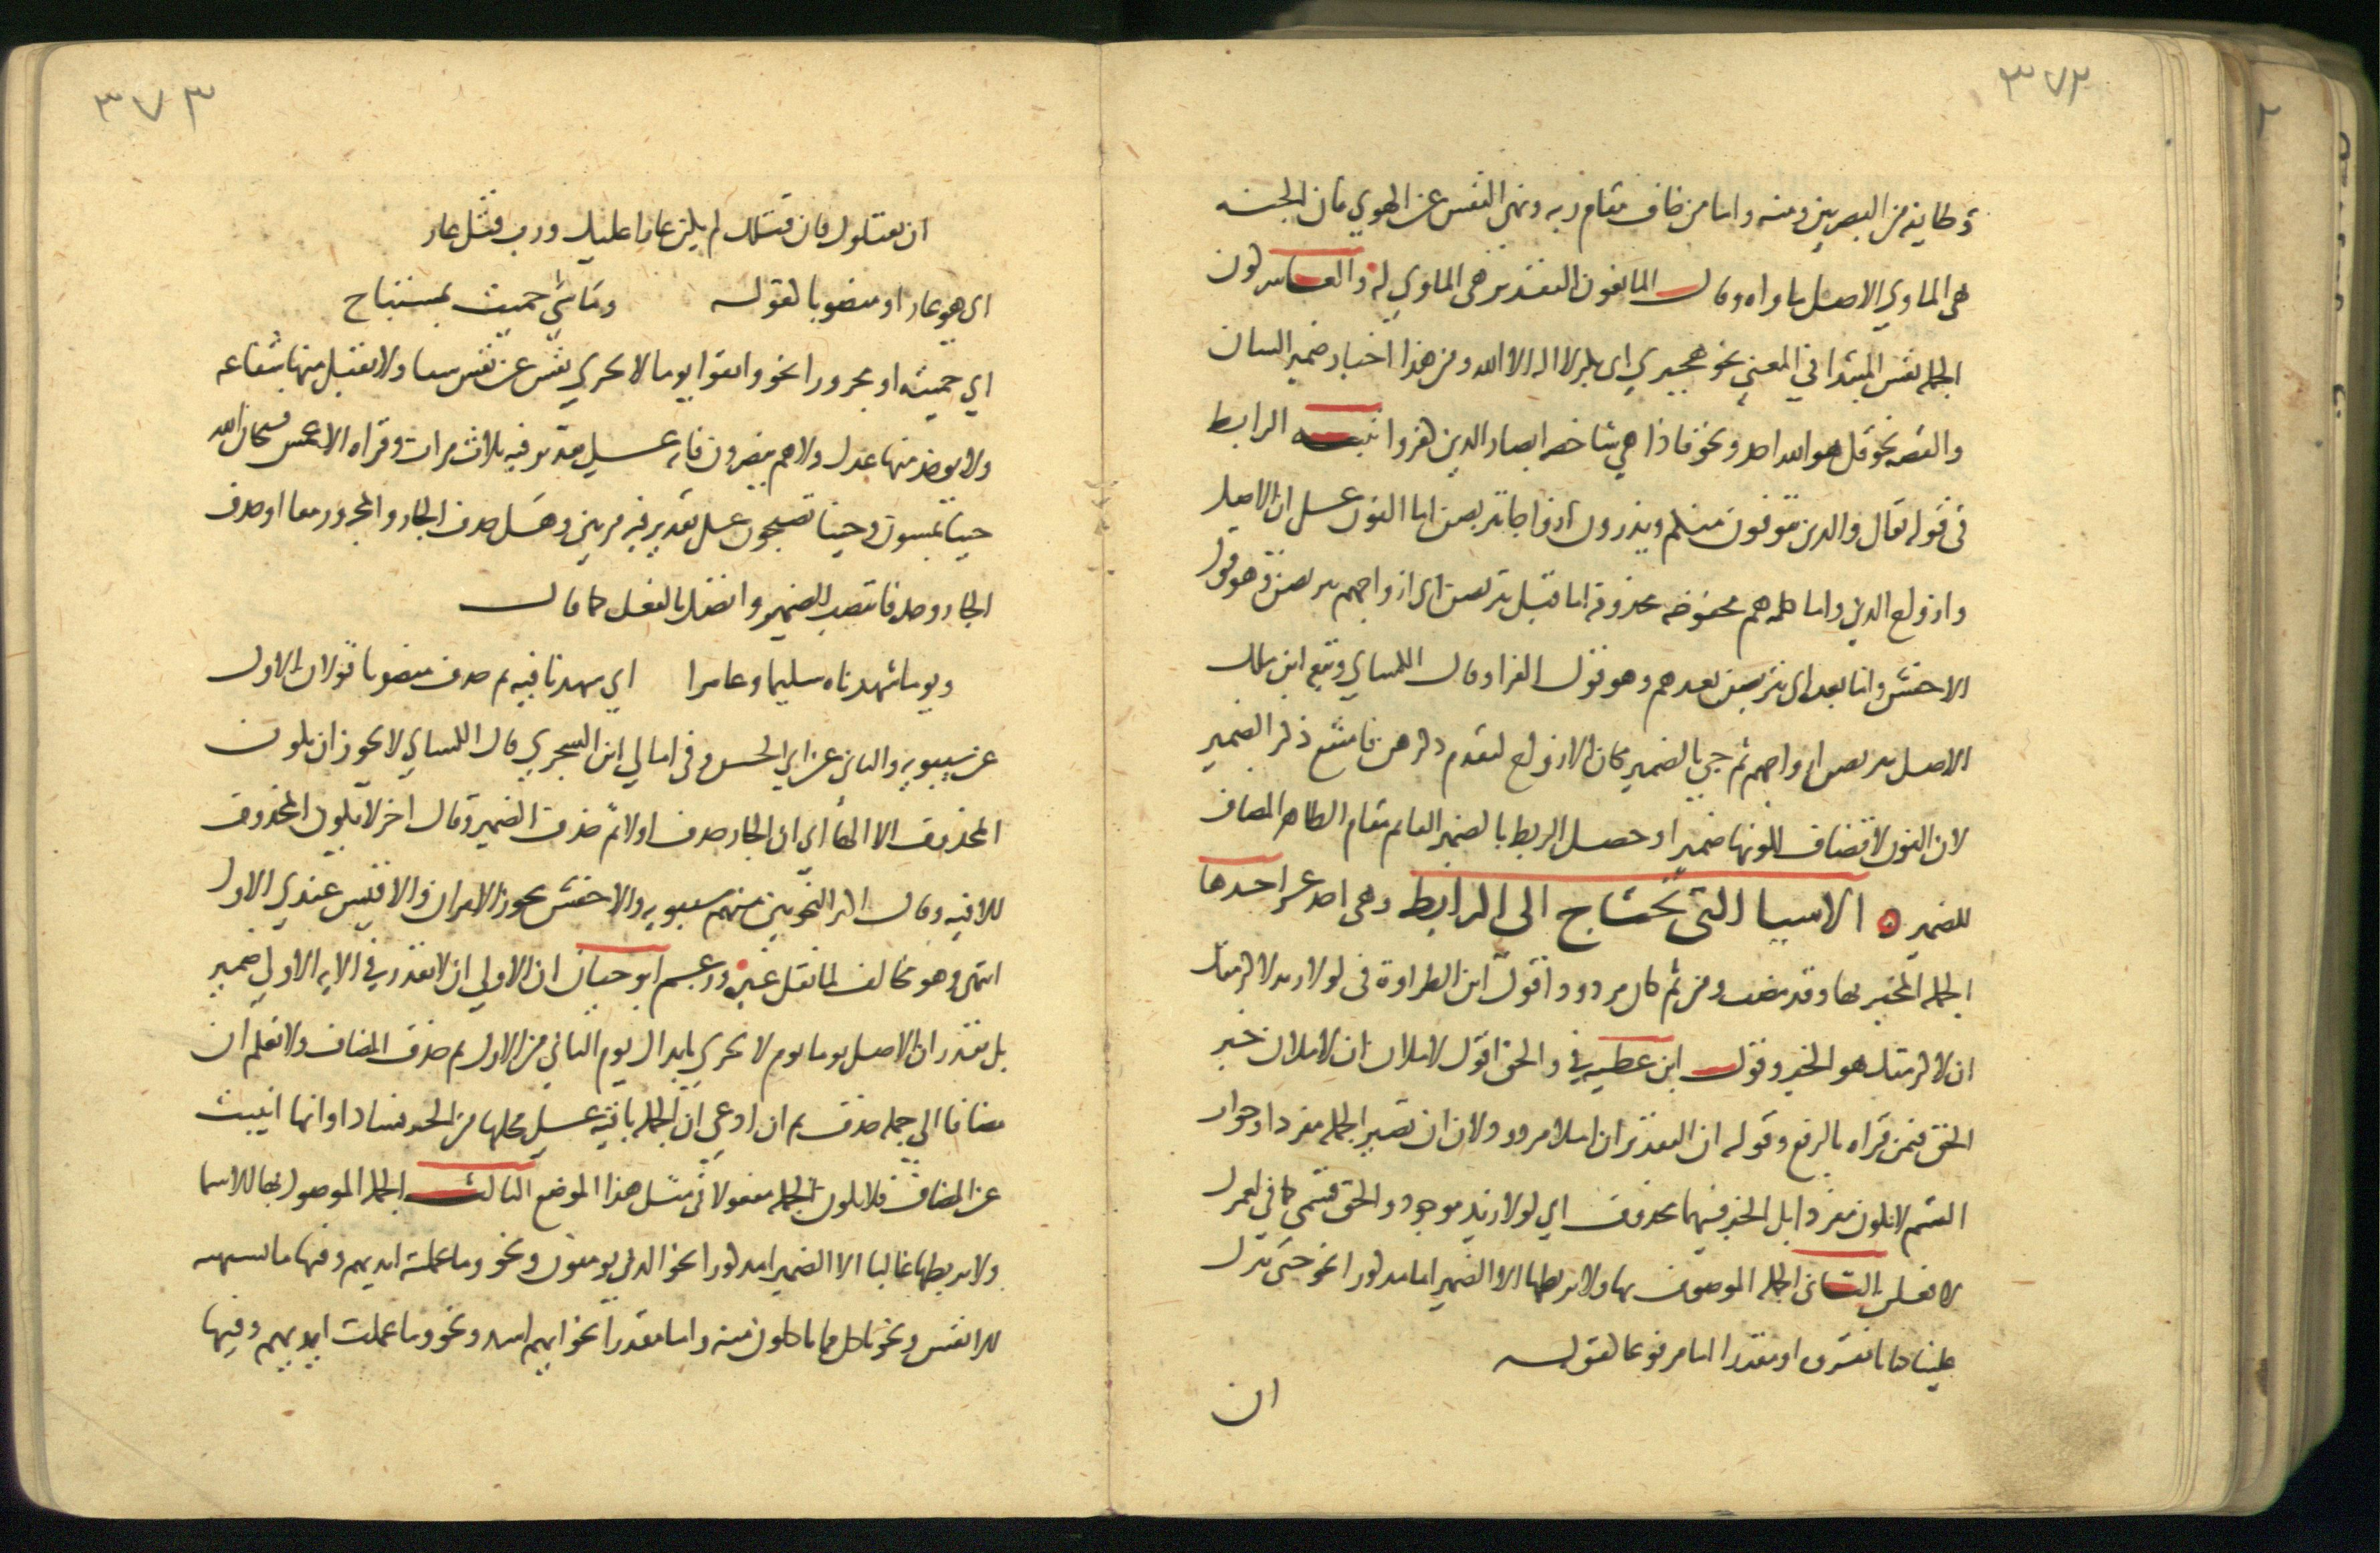 ٣٧٢
وطايفة من البصريين ومنه واما من خاف مقام ربه ونهى النفس عن الهوي فان الجنه
هي الماوي الاصل ماواه وقال المانعون التقدير هي الماوي له والعاشر كون
الجمله نفس المبتدا في المعني نحو هجيري ابي بكر لا اله الا الله ومن هذا اخبار ضمير الشان
والقصه نحو قل هو الله احد ونحو فاذا هي شاخصه ابصار الذين كفروا تنبيه الرابط
في قوله تعالى والذين يتوفون منكم ويذرون ازواجا يتربصن اما النون على ان الاصل
وازواج الذين واما كلمه هم مخفوضه محذوفه اما قبل يتربصن اي ازواجهم يتربصن وهو قول
الاخفش واما بعده اي يتربصن بعدهم وهو قول الفرا وقال الكسائي وتبعه ابن مالك
الاصل يتربص ازواجهم ثم جي بالضمير مكان الازواج لتقدم ذكرهن فامتنع ذكر الضمير
لان النون لا تضاف لكونها ضميرا وحصل الربط بالضمير القايم مقام الظاهر المضاف
للضمير ه الاشيا التي تحتاج الى الرابط وهي احد عشر احدها
الجمله المخبر بها وقد مضت ومن ثم كان مردودا قول ابن الطراوة في لولا زيد لاكرمتك
ان لاكرمتك هو الخبر وقول ابن عطيه في والحق اقول لاملان ان لاملان خبر
الحق فيمن قراه بالرفع وقوله ان التقدير ان املا مردود لان ان تصير الجمله مفردا وجواب
القسم لا يكون مفردا بل الخبر فيهما محذوف اي لولا زيد موجود والحق قسمي كما في لعمرك
لافعلن الثاني الجمله الموصوف بها ولا يربطها الا الضمير اما مذكورا نحو حتى تنزل
علينا كتابا نقروه او مقدرا اما مرفوعا كقوله
ان
٣٧٣
ان يقتلوك فان قتلك لم يكن عارا عليك ورب قتل عار
اي هو عار او منصوبا كقوله وما شي حميت بمستباح
اي حميته او مجرورا نحو واتقوا يوما لا تجزي نفس عن نفس شيا ولا يقبل منها شفاعه
ولا يوخذ منها عدل ولا هم ينصرون فانه على تقدير فيه ثلاث مرات وقراه الاعمش فسبحان الله
حينا تمسون وحينا تصبحون على تقدير فيه مرتين وهل حذف الجار والمجرور معا او حذف
الجار وحده فانتصب الضمير واتصل بالفعل كما قال
ويوما شهدناه سليما وعامرا اي شهدنا فيه ثم حذف منصوبا قولان الاول
عن سيبويه والثاني عن ابي الحسن وفي امالي ابن الشجري قال الكسائي لا يجوز ان يكون
المحذوف الا الها اي ان الجار حذف اولا ثم حذف الضمير وقال اخر لا يكون المحذوف
الا فيه وقال اكثر النحويين منهم سيبويه والاخفش يجوز الامران والاقيس عندي الاول
انتهى وهو مخالف لما نقل غيره وزعم ابو حيان ان الاولي ان لا يقدر في الايه الاولي ضمير
بل يقدر ان الاصل يوما يوم لا تجزي بابدال يوم الثاني من الاول ثم حذف المضاف ولا نعلم ان
مضافا الي جمله حذف ثم ان ادعي ان الجمله باقيه على محلها من الجر فشاذ او انها انيبت
عن المضاف فلا تكون الجمله مفعولا في مثل هذا الموضع الثالث الجمله الموصول بها الاسما
ولا يربطها غالبا الا الضمير اما مذكورا نحو الذين يومنون ونحو وما عملته ايديهم وفيها ما تشتهيه
الانفس ونحو ياكل مما تاكلون منه واما مقدرا نحو ايهم اشد ونحو وما عملت ايديهم وفيها